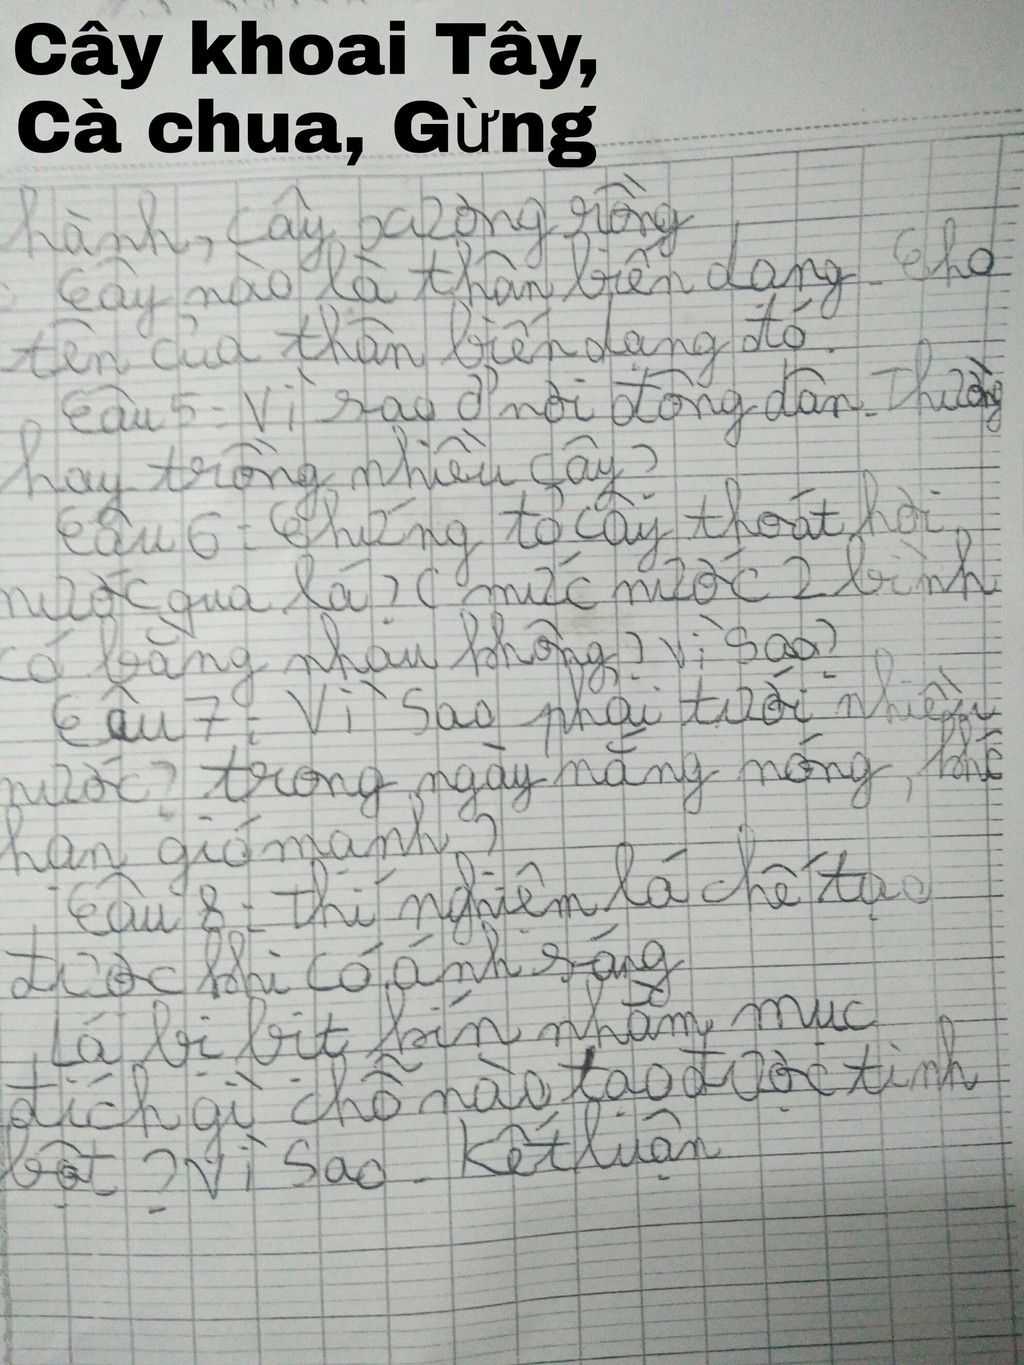 Cây khoai Tây,
Cà chua, Gừng
hành, cây xương rồng
Cây nào là thân biến dạng. Cho
tên của thân biến dạng đó.
Câu 5: Vì sao ở nơi đông dân. Thường
hay trồng nhiều cây?
Câu 6: Chứng tỏ cây thoát hơi
nước qua lá? ( mức nước 2 bình
có bằng nhau không? Vì sao?
Câu 7: Vì sao phải tưới nhiều
nước? trong ngày nắng nóng, khô
hạn gió mạnh?
Câu 8: Thí nghiệm lá chế tạo
được khi có ánh sáng
Lá bị bịt kín nhằm mục
đích gì chỗ nào tạo được tinh
bột? Vì sao. Kết luận